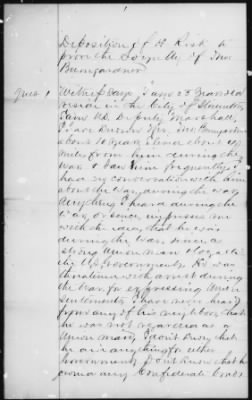 Deposition of
to
prove the Loyalty of
Bumgardner
Ques 1 Witness says I am 28 years old
reside in the City of Staunton
Deputy Marshall,
I have known Mr. Jno Bumgardner
about 10 years I lived about
miles from him during the
war & saw him frequently I
had my conversation with him
about the war, during the war
Anything I heard during the
War or since impresses me
with the idea, that he was
during the War, since a
strong Union man & loyal to
the U.S. Government. He was
threatened with arrest during
the War for expressing Union
Sentiments. I have never heard
from any of his neighbors that
he was not regarded as a
Union man, I don't know that
he did anything for either
Government, I don't know that he
owned any Confederate bonds